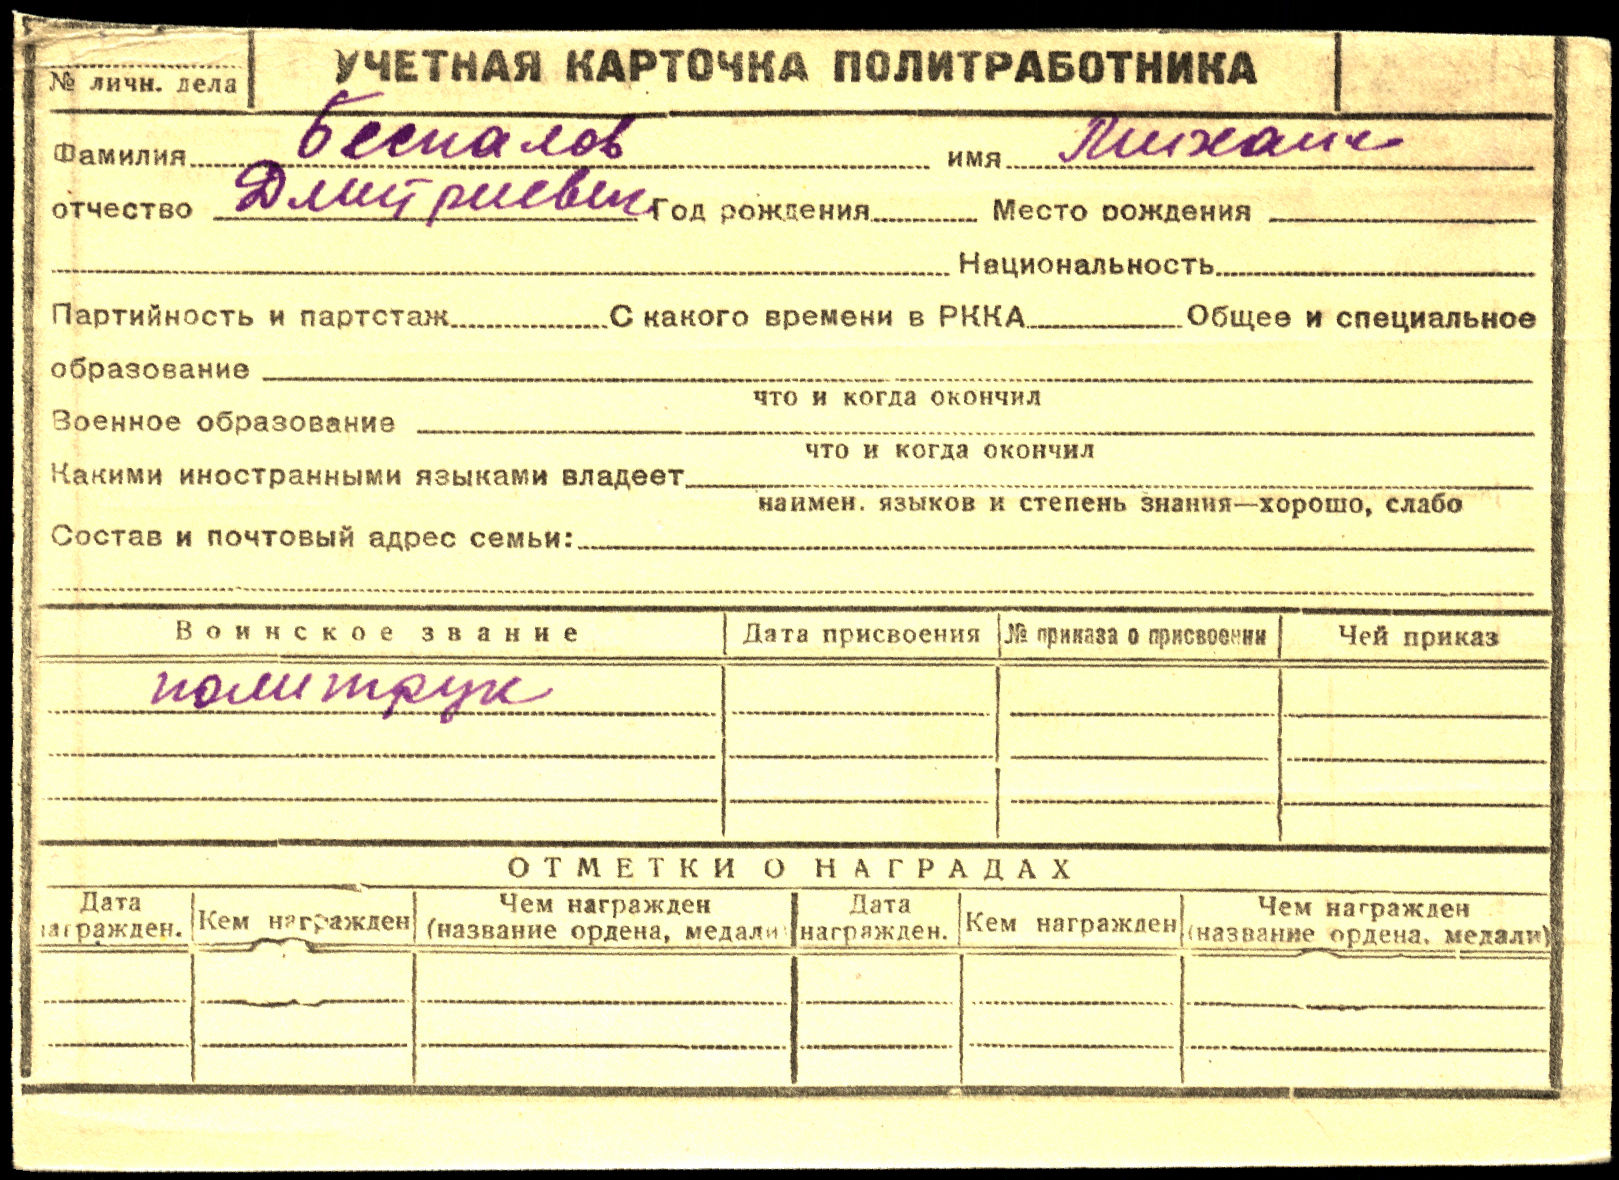 УЧЕТНАЯ КАРТОЧКА ПОЛИТРАБОТНИКА
№ личн. дела
Фамилия Беспалов имя Михаил
отчество Дмитриевич Год рождения Место рождения
Национальность
Партийность и партстаж С какого времени в РККА Общее и специальное
образование
что и когда окончил
Военное образование
что и когда окончил
Какими иностранными языками владеет
наимен. языков и степень знания—хорошо, слабо
Состав и почтовый адрес семьи:
Воинское звание Дата присвоения № приказа о присвоении Чей приказ
политрук
ОТМЕТКИ О НАГРАДАХ
Дата награжден. Кем награжден Чем награжден (название ордена, медали Дата награжден. Кем награжден Чем награжден (название ордена, медали)